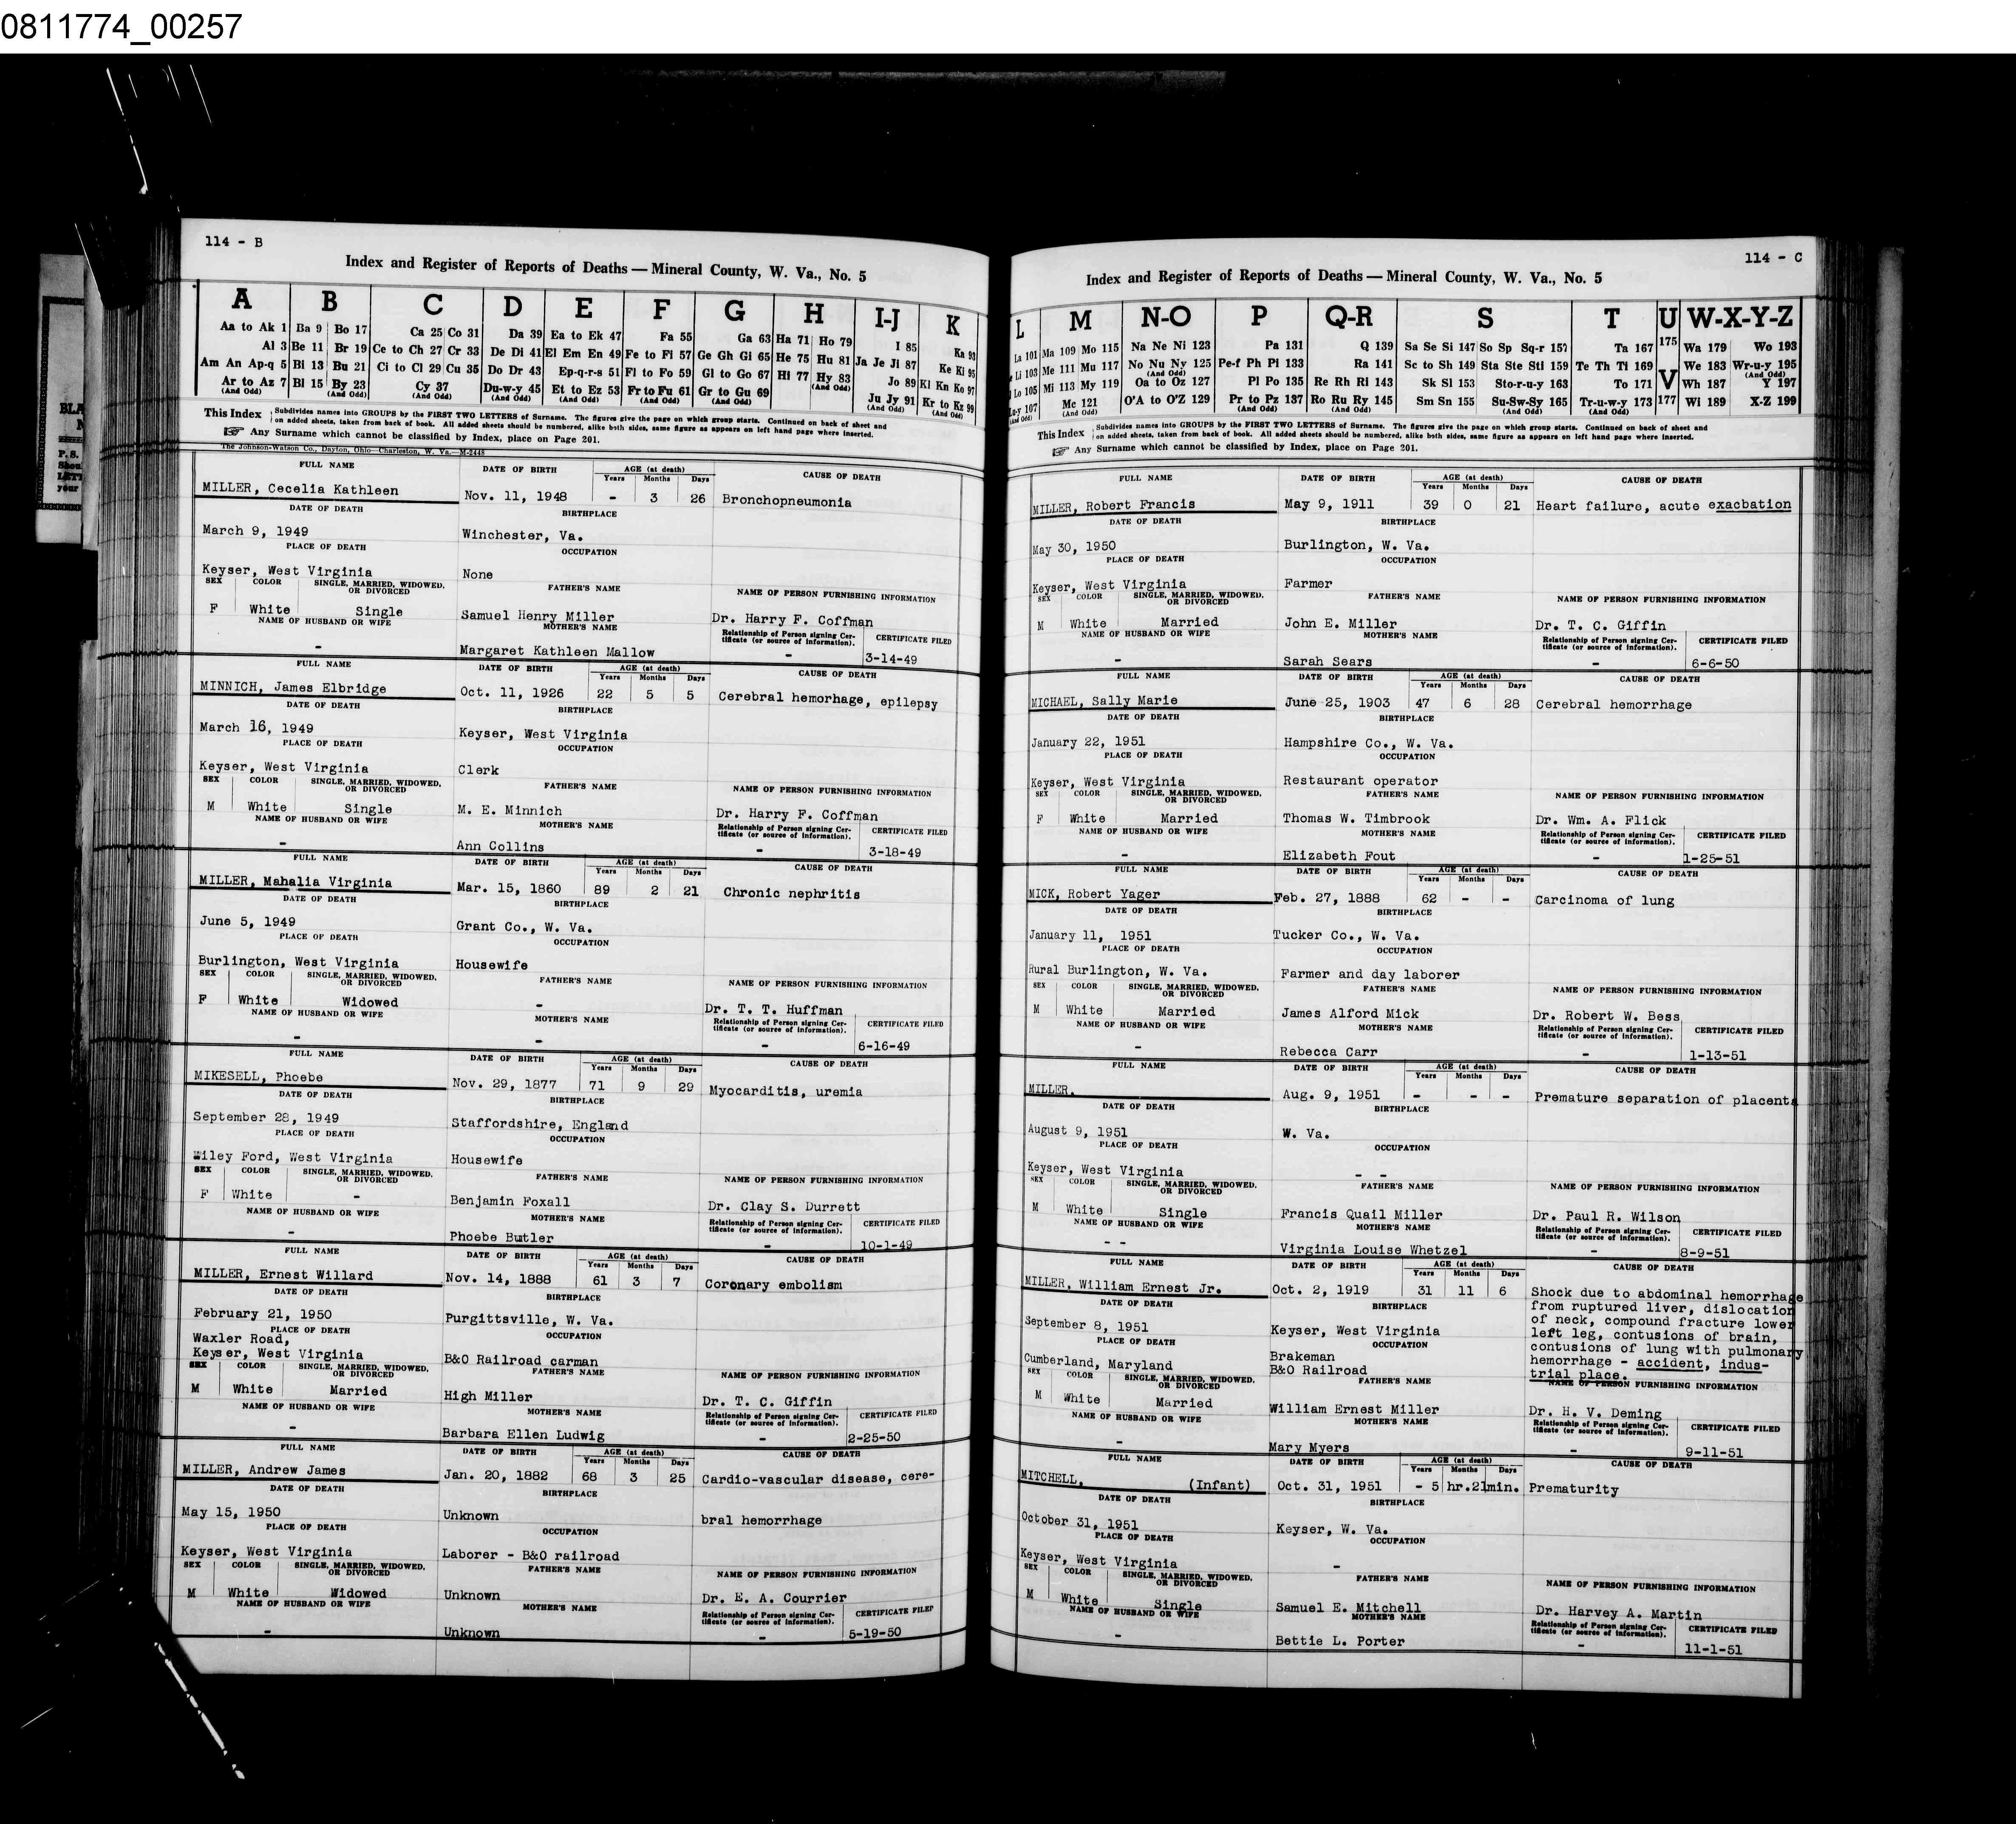 0811774_00257
114 - B
Index and Register of Reports of Deaths — Mineral County, W. Va., No. 5
A B C D E F G H I-J K
Aa to Ak 1 Ba 9 Bo 17 Ca 25 Co 31 Da 39 Ea to Ek 47 Fa 55 Ga 63 Ha 71 Ho 79 I 85 Ka 93
Al 3 Be 11 Br 19 Ce to Ch 27 Cr 33 De Di 41 El Em En 49 Fe to Fi 57 Ge Gh Gi 65 He 75 Hu 81 Ja Je Ji 87 Ke Ki 95
Am An Ap-q 5 Bi 13 Bu 21 Ci to Cl 29 Cu 35 Do Dr 43 Ep-q-r-s 51 Fl to Fo 59 Gl to Go 67 Hi 77 Hy 83 Jo 89 Kl Kn Ko 97
Ar to Az 7 Bl 15 By 23 Cy 37 Du-w-y 45 Et to Ez 53 Fr to Fu 61 Gr to Gu 69 (And Odd) Ju Jy 91 Kr to Kz 99
(And Odd) (And Odd) (And Odd) (And Odd) (And Odd) (And Odd) (And Odd) (And Odd) (And Odd)
This Index Subdivides names into GROUPS by the FIRST TWO LETTERS of Surname. The figures give the page on which group starts. Continued on back of sheet and
on added sheets, taken from back of book. All added sheets should be numbered, alike both sides, same figure as appears on left hand page where inserted.
Any Surname which cannot be classified by Index, place on Page 201.
The Johnson-Watson Co., Dayton, Ohio—Charleston, W. Va.—M-2448
FULL NAME DATE OF BIRTH AGE (at death) CAUSE OF DEATH
Years Months Days
MILLER, Cecelia Kathleen Nov. 11, 1948 - 3 26 Bronchopneumonia
DATE OF DEATH BIRTHPLACE
March 9, 1949 Winchester, Va.
PLACE OF DEATH OCCUPATION
Keyser, West Virginia None
SEX COLOR SINGLE, MARRIED, WIDOWED, OR DIVORCED FATHER'S NAME NAME OF PERSON FURNISHING INFORMATION
F White Single Samuel Henry Miller Dr. Harry F. Coffman
NAME OF HUSBAND OR WIFE MOTHER'S NAME Relationship of Person signing Certificate (or source of information). CERTIFICATE FILED
- Margaret Kathleen Mallow - 3-14-49
FULL NAME DATE OF BIRTH AGE (at death) CAUSE OF DEATH
Years Months Days
MINNICH, James Elbridge Oct. 11, 1926 22 5 5 Cerebral hemorhage, epilepsy
DATE OF DEATH BIRTHPLACE
March 16, 1949 Keyser, West Virginia
PLACE OF DEATH OCCUPATION
Keyser, West Virginia Clerk
SEX COLOR SINGLE, MARRIED, WIDOWED, OR DIVORCED FATHER'S NAME NAME OF PERSON FURNISHING INFORMATION
M White Single M. E. Minnich Dr. Harry F. Coffman
NAME OF HUSBAND OR WIFE MOTHER'S NAME Relationship of Person signing Certificate (or source of information). CERTIFICATE FILED
- Ann Collins - 3-18-49
FULL NAME DATE OF BIRTH AGE (at death) CAUSE OF DEATH
Years Months Days
MILLER, Mahalia Virginia Mar. 15, 1860 89 2 21 Chronic nephritis
DATE OF DEATH BIRTHPLACE
June 5, 1949 Grant Co., W. Va.
PLACE OF DEATH OCCUPATION
Burlington, West Virginia Housewife
SEX COLOR SINGLE, MARRIED, WIDOWED, OR DIVORCED FATHER'S NAME NAME OF PERSON FURNISHING INFORMATION
F White Widowed - Dr. T. T. Huffman
NAME OF HUSBAND OR WIFE MOTHER'S NAME Relationship of Person signing Certificate (or source of information). CERTIFICATE FILED
- - - 6-16-49
FULL NAME DATE OF BIRTH AGE (at death) CAUSE OF DEATH
Years Months Days
MIKESELL, Phoebe Nov. 29, 1877 71 9 29 Myocarditis, uremia
DATE OF DEATH BIRTHPLACE
September 28, 1949 Staffordshire, England
PLACE OF DEATH OCCUPATION
Wiley Ford, West Virginia Housewife
SEX COLOR SINGLE, MARRIED, WIDOWED, OR DIVORCED FATHER'S NAME NAME OF PERSON FURNISHING INFORMATION
F White - Benjamin Foxall Dr. Clay S. Durrett
NAME OF HUSBAND OR WIFE MOTHER'S NAME Relationship of Person signing Certificate (or source of information). CERTIFICATE FILED
- Phoebe Butler - 10-1-49
FULL NAME DATE OF BIRTH AGE (at death) CAUSE OF DEATH
Years Months Days
MILLER, Ernest Willard Nov. 14, 1888 61 3 7 Coronary embolism
DATE OF DEATH BIRTHPLACE
February 21, 1950 Purgittsville, W. Va.
PLACE OF DEATH OCCUPATION
Waxler Road,
Keyser, West Virginia B&O Railroad carman
SEX COLOR SINGLE, MARRIED, WIDOWED, OR DIVORCED FATHER'S NAME NAME OF PERSON FURNISHING INFORMATION
M White Married High Miller Dr. T. C. Giffin
NAME OF HUSBAND OR WIFE MOTHER'S NAME Relationship of Person signing Certificate (or source of information). CERTIFICATE FILED
- Barbara Ellen Ludwig - 2-25-50
FULL NAME DATE OF BIRTH AGE (at death) CAUSE OF DEATH
Years Months Days
MILLER, Andrew James Jan. 20, 1882 68 3 25 Cardio-vascular disease, cere-
DATE OF DEATH BIRTHPLACE
May 15, 1950 Unknown bral hemorrhage
PLACE OF DEATH OCCUPATION
Keyser, West Virginia Laborer - B&O railroad
SEX COLOR SINGLE, MARRIED, WIDOWED, OR DIVORCED FATHER'S NAME NAME OF PERSON FURNISHING INFORMATION
M White Widowed Unknown Dr. E. A. Courrier
NAME OF HUSBAND OR WIFE MOTHER'S NAME Relationship of Person signing Certificate (or source of information). CERTIFICATE FILED
- Unknown - 5-19-50
114 - C
Index and Register of Reports of Deaths — Mineral County, W. Va., No. 5
L M N-O P Q-R S T U W-X-Y-Z
La 101 Ma 109 Mo 115 Na Ne Ni 123 Pa 131 Q 139 Sa Se Si 147 So Sp Sq-r 157 Ta 167 175 Wa 179 Wo 193
Li 103 Me 111 Mu 117 No Nu Ny 125 Pe-f Ph Pi 133 Ra 141 Sc to Sh 149 Sta Ste Sti 159 Te Th Ti 169 We 183 Wr-u-y 195
Lo 105 Mi 113 My 119 Oa to Oz 127 Pl Po 135 Re Rh Ri 143 Sk Sl 153 Sto-r-u-y 163 To 171 V Wh 187 Y 197
107 Mc 121 O'A to O'Z 129 Pr to Pz 137 Ro Ru Ry 145 Sm Sn 155 Su-Sw-Sy 165 Tr-u-w-y 173 177 Wi 189 X-Z 199
(And Odd) (And Odd) (And Odd) (And Odd) (And Odd) (And Odd) (And Odd)
This Index Subdivides names into GROUPS by the FIRST TWO LETTERS of Surname. The figures give the page on which group starts. Continued on back of sheet and
on added sheets, taken from back of book. All added sheets should be numbered, alike both sides, same figure as appears on left hand page where inserted.
Any Surname which cannot be classified by Index, place on Page 201.
FULL NAME DATE OF BIRTH AGE (at death) CAUSE OF DEATH
Years Months Days
MILLER, Robert Francis May 9, 1911 39 0 21 Heart failure, acute exacbation
DATE OF DEATH BIRTHPLACE
May 30, 1950 Burlington, W. Va.
PLACE OF DEATH OCCUPATION
Keyser, West Virginia Farmer
SEX COLOR SINGLE, MARRIED, WIDOWED, OR DIVORCED FATHER'S NAME NAME OF PERSON FURNISHING INFORMATION
M White Married John E. Miller Dr. T. C. Giffin
NAME OF HUSBAND OR WIFE MOTHER'S NAME Relationship of Person signing Certificate (or source of information). CERTIFICATE FILED
- Sarah Sears - 6-6-50
FULL NAME DATE OF BIRTH AGE (at death) CAUSE OF DEATH
Years Months Days
MICHAEL, Sally Marie June 25, 1903 47 6 28 Cerebral hemorrhage
DATE OF DEATH BIRTHPLACE
January 22, 1951 Hampshire Co., W. Va.
PLACE OF DEATH OCCUPATION
Keyser, West Virginia Restaurant operator
SEX COLOR SINGLE, MARRIED, WIDOWED, OR DIVORCED FATHER'S NAME NAME OF PERSON FURNISHING INFORMATION
F White Married Thomas W. Timbrook Dr. Wm. A. Flick
NAME OF HUSBAND OR WIFE MOTHER'S NAME Relationship of Person signing Certificate (or source of information). CERTIFICATE FILED
- Elizabeth Fout - 1-25-51
FULL NAME DATE OF BIRTH AGE (at death) CAUSE OF DEATH
Years Months Days
MICK, Robert Yager Feb. 27, 1888 62 - - Carcinoma of lung
DATE OF DEATH BIRTHPLACE
January 11, 1951 Tucker Co., W. Va.
PLACE OF DEATH OCCUPATION
Rural Burlington, W. Va. Farmer and day laborer
SEX COLOR SINGLE, MARRIED, WIDOWED, OR DIVORCED FATHER'S NAME NAME OF PERSON FURNISHING INFORMATION
M White Married James Alford Mick Dr. Robert W. Bess
NAME OF HUSBAND OR WIFE MOTHER'S NAME Relationship of Person signing Certificate (or source of information). CERTIFICATE FILED
- Rebecca Carr - 1-13-51
FULL NAME DATE OF BIRTH AGE (at death) CAUSE OF DEATH
Years Months Days
MILLER, Aug. 9, 1951 - - - Premature separation of placenta
DATE OF DEATH BIRTHPLACE
August 9, 1951 W. Va.
PLACE OF DEATH OCCUPATION
Keyser, West Virginia - -
SEX COLOR SINGLE, MARRIED, WIDOWED, OR DIVORCED FATHER'S NAME NAME OF PERSON FURNISHING INFORMATION
M White Single Francis Quail Miller Dr. Paul R. Wilson
NAME OF HUSBAND OR WIFE MOTHER'S NAME Relationship of Person signing Certificate (or source of information). CERTIFICATE FILED
- - Virginia Louise Whetzel - 8-9-51
FULL NAME DATE OF BIRTH AGE (at death) CAUSE OF DEATH
Years Months Days
MILLER, William Ernest Jr. Oct. 2, 1919 31 11 6 Shock due to abdominal hemorrhage
DATE OF DEATH BIRTHPLACE from ruptured liver, dislocation
September 8, 1951 Keyser, West Virginia of neck, compound fracture lower
left leg, contusions of brain,
PLACE OF DEATH OCCUPATION contusions of lung with pulmonary
Cumberland, Maryland Brakeman hemorrhage - accident, indus-
B&O Railroad trial place.
SEX COLOR SINGLE, MARRIED, WIDOWED, OR DIVORCED FATHER'S NAME NAME OF PERSON FURNISHING INFORMATION
M White Married William Ernest Miller Dr. H. V. Deming
NAME OF HUSBAND OR WIFE MOTHER'S NAME Relationship of Person signing Certificate (or source of information). CERTIFICATE FILED
- Mary Myers - 9-11-51
FULL NAME DATE OF BIRTH AGE (at death) CAUSE OF DEATH
Years Months Days
MITCHELL, (Infant) Oct. 31, 1951 - 5 hr. 21min. Prematurity
DATE OF DEATH BIRTHPLACE
October 31, 1951 Keyser, W. Va.
PLACE OF DEATH OCCUPATION
Keyser, West Virginia -
SEX COLOR SINGLE, MARRIED, WIDOWED, OR DIVORCED FATHER'S NAME NAME OF PERSON FURNISHING INFORMATION
M White Single Samuel E. Mitchell Dr. Harvey A. Martin
NAME OF HUSBAND OR WIFE MOTHER'S NAME Relationship of Person signing Certificate (or source of information). CERTIFICATE FILED
- Bettie L. Porter - 11-1-51